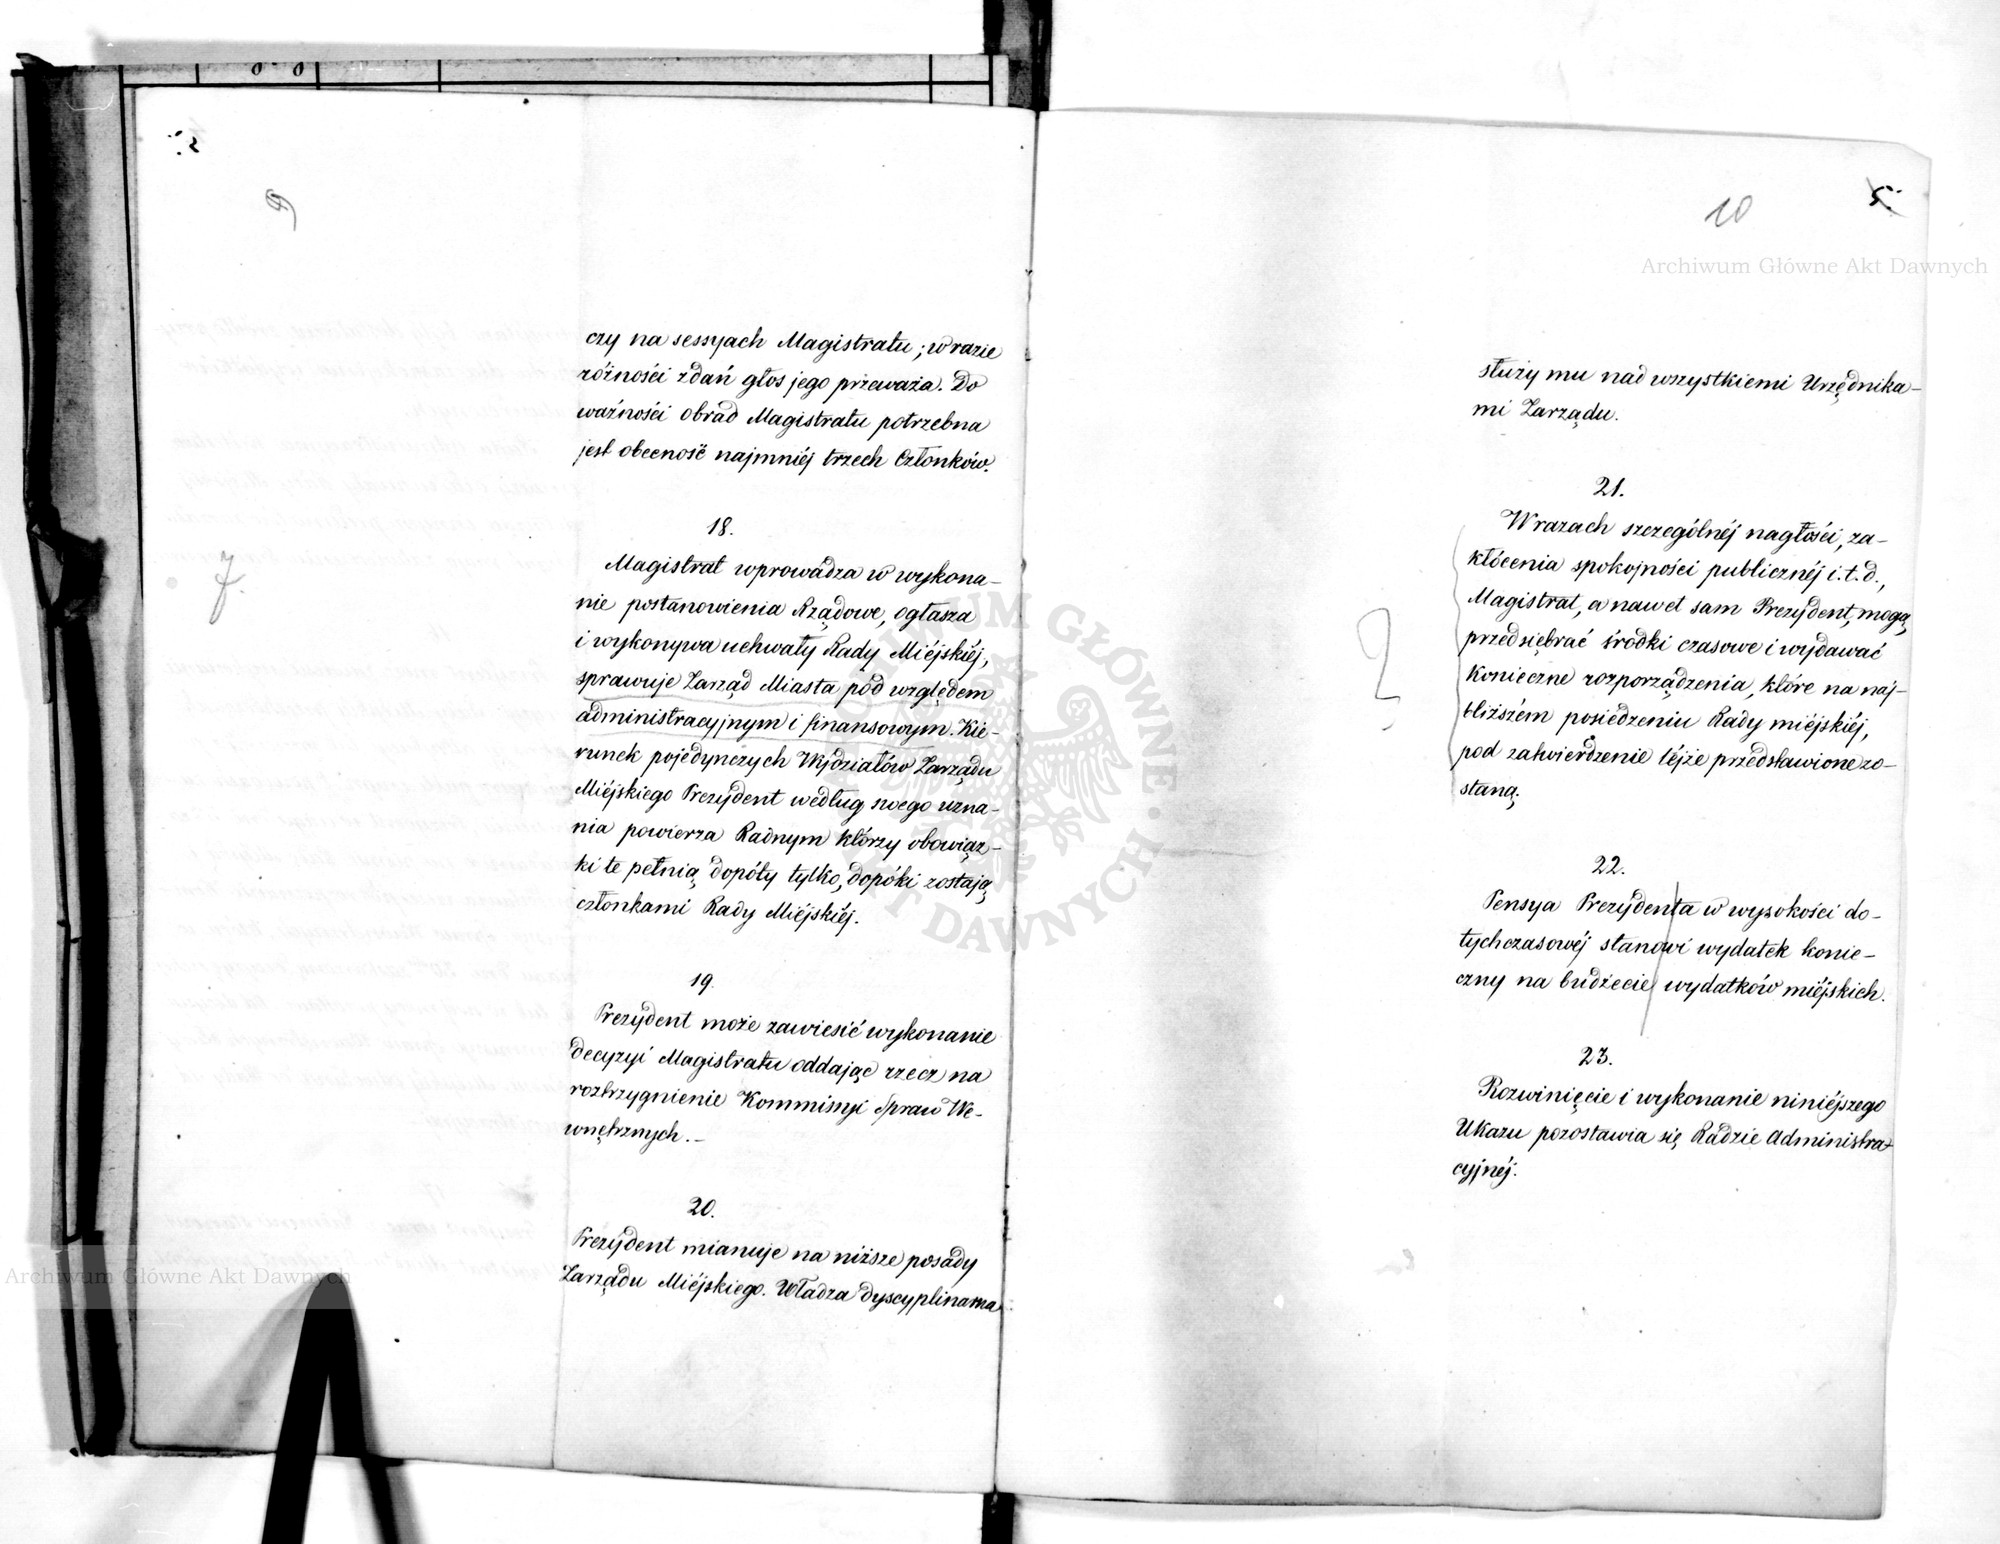 czy na sessyach Magistratu; w razie
różności zdań głos jego przeważa. Do
ważności obrad Magistratu potrzebna
jest obecność najmniéj trzech Członków.
18.
Magistrat wprowadza w wykona-
nie postanowienia Rządowe, ogłasza
i wykonywa uchwały Rady Miéjskiéj,
sprawuje Zarząd Miasta pod względem
administracyjnym i finansowym. Kie-
runek pojedynczych Wydziałów Zarządu
Miéjskiego Prezydent według swego uzna-
nia powierza Radnym którzy obowiąz-
ki te pełnią dopóty tylko, dopóki zostają
członkami Rady Miéjskiéj.
19.
Prezydent może zawiesić wykonanie
decyzyi Magistratu oddając rzecz na
rozstrzygnienie Kommissyi Spraw We-
wnętrznych.-
20.
Prezydent mianuje na niższe posady
Zarządu Miéjskiego. Władza dyscyplinarna
10
Archiwum Główne Akt Dawnych
służy mu nad wszystkiemi Urzędnika-
mi Zarządu.
21.
W razach szczególnéj nagłości, za-
kłócenia spokojności publicznéj i.t.d.,
Magistrat, a nawet sam Prezydent, mogą,
przedsiębrać środki czasowe i wydawać
konieczne rozporządzenia, które na naj-
bliższém posiedzeniu Rady miéjskiéj,
pod zatwierdzenie téjże przedstawione zo-
staną.
22.
Pensya Prezydenta w wysokości do-
tychczasowéj stanowi wydatek konie-
czny na budżecie wydatków miéjskich.
23.
Rozwinięcie i wykonanie niniéjszego
Ukazu pozostawia się Radzie Administra-
cyjnéj.
Archiwum Główne Akt Dawnych
ARCHIWUM GŁÓWNE · AKT DAWNYCH ·